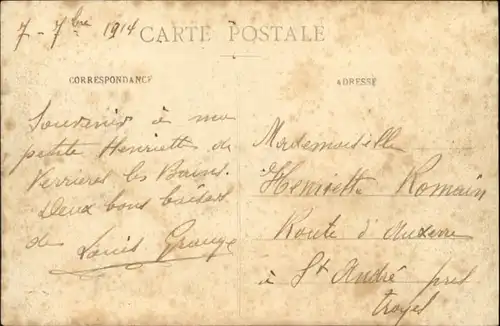 7 - 7bre 1914
CARTE POSTALE
CORRESPONDANCE
Souvenir à ma
petite Henriette de
Verrières les Bains.
Deux bons baisers
de
Louis Grange
ADRESSE
Mademoiselle
Henriette Romain
Route d'Auxerre
à St André près
Troyes